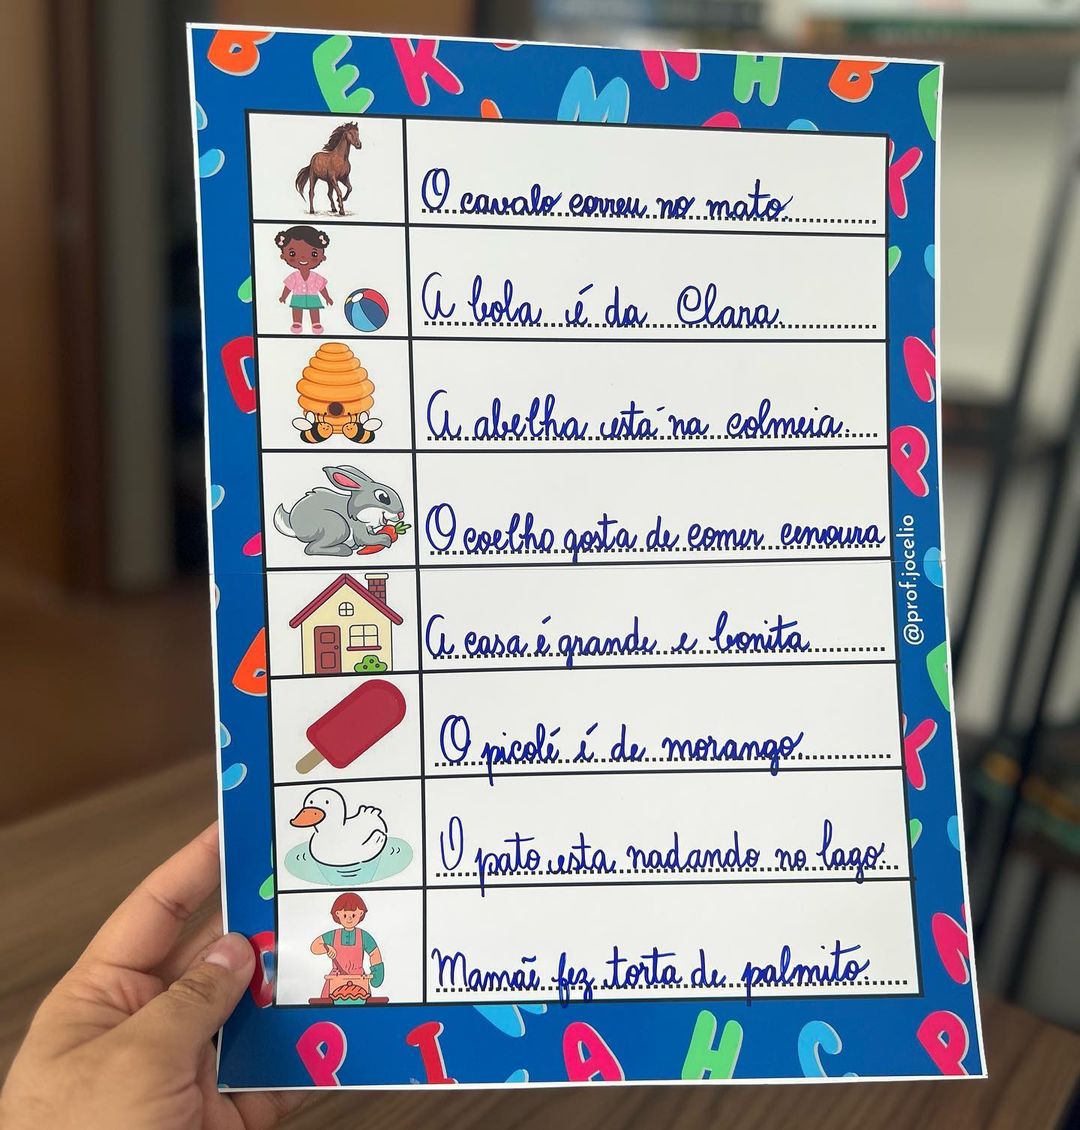 O cavalo correu no mato.
A bola é da Clara.
A abelha está na colmeia.
O coelho gosta de comer cenoura
A casa é grande e bonita
O picolé é de morango.
O pato esta nadando no lago.
Mamãe fez torta de palmito.
@prof.jocelio